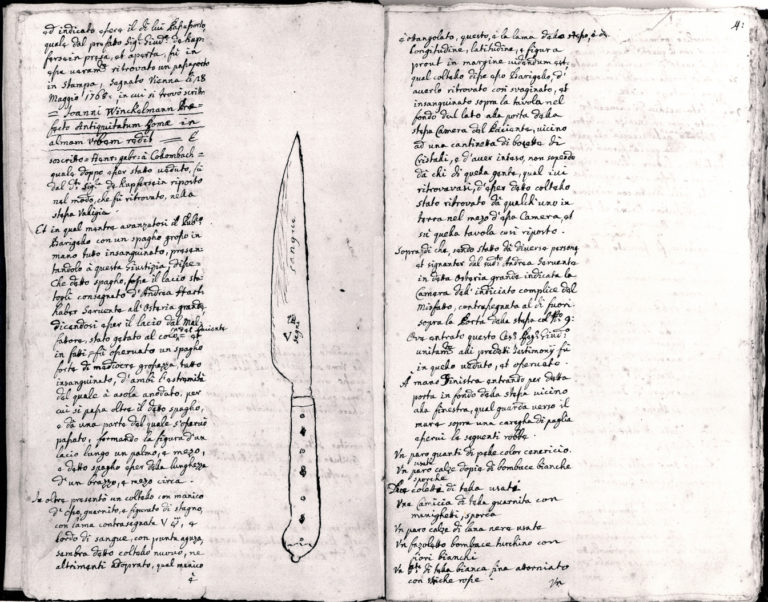 ed indicato esere il di lui Passaporto,
quale dal prefato Sigr. Giud.
persa in presa, et aperta, fù in
esse ritrovato un passaporto
in stampa, segnato Vienna li 28
Maggio 1768. in cui si trovò scritto
= Joanni Winckelmann Præ-
fecto Antiquitatum Romæ in
almam Urbem redit = E
soscritto = Henri gebri à Colombach =
quale doppo esser stato veduto, fù
dal riposto
nel modo, che fù ritrovato, nella
stessa Valigia.
Et in qual mentre avanzatosi il Publ.
Barigello con un spagho grosso in
mano tutto insanguinato, presen-
tandolo à questa Giustizia, disse
Che detto spagho, fosse il lacio sta-
togli consegnato d'Andrea Harth
haber servente all'Osteria grande
dicendosi esser il lacio dal Mal-
fatore, stato getato al colo et
in fatti fù osservato un spagho
forte di mediocre grosezza, tutto
insanguinato, d'ambi l'estremità
del quale à asola anodato, per
cui si passa oltre il detto spagho,
e dà una parte del quale s'osservò
passato, formando la figura d'un
lacio lungo un palmo, e mezo,
e detto spagho esser della lunghezza
d'un brazzo, e mezo circa.
In oltre presentò un coltello con manico
d'osso, guernito, e figurato di stagno,
con lama contrasegnata V et
lordo di sangue, con punta aguza,
sembra detto coltello nuovo, ne
altrimenti adoprato, qual manico
è
sangue
V
segni
4:
è otangolato, questo, e la lama dello stesso, è di
longitudine, latitudine, e figura
prout in margine videndum est,
qual coltello disse esso Barigello, d'
averlo ritrovato così svaginato, et
insanguinato sopra la tavola nel
fondo dal lato alla porta della
stessa Camera del Paciente, vicino
ad una cantinetta di bozette di
Cristalli, e d'aver inteso, non sapendo
da chi di quella gente, qual ivi
ritrovavasi, d'esser detto coltello
stato ritrovato dà qualch'uno in
terra nel mezo d'essa Camera, et
sù quella tavola così riposto.
Sopra di che, sendo stato dà diverse persone
et signanter dal sudto. Andrea servente
in detta Osteria grande indicata la
Camera dell'indiciato complice del
Misfatto, contrasegnata al di fuori
sopra la Porta della stessa col N: 9:
Ove entrato questo
unitamte. alli predetti Testimonij fù
in quello veduto, et osservato.
A mano sinistra entrando per detta
porta in fondo della stessa vicino
alla finestra, qual guarda verso il
mare sopra una caregha di paglia
esservi le seguenti robbe.
Un paro guanti di pelle color cenericio
usati
Un paro calze dopie di bombace bianche
sporche
Due colette di tella usate
Una Camicia di tella guarnita con
manighetti, sporca
Un paro calze di lana nere usate
Un fazoletto bombace turchino con
fiori bianchi
Un di tella bianca fina attorniato
con striche rosse
Un